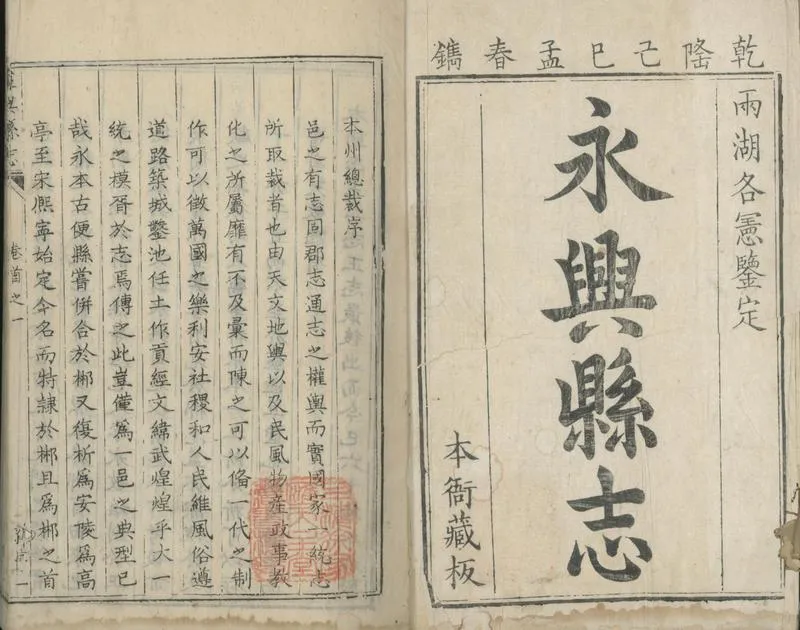 乾隆巳孟春鐫
兩湖各憲鑒定
永興縣志
本衙藏板
本州總裁序
邑之有志固郡志通志之權輿而實國家一統志
所取裁者也由天文地輿以及民風物産政事教
化之所屬靡有不及彙而陳之可以俻一代之制
作可以徵萬國之樂利安社稷和人民維風俗遵
道路築城鑿池任土作貢經文緯武煌煌乎大一
統之模胥於志焉傳之此豈僅為一邑之典型已
哉永本古便縣嘗併合於郴又復析爲安陵爲高
亭至宋熈寧始定今名而特隷於郴且爲郴之首
永興縣志
卷首之一